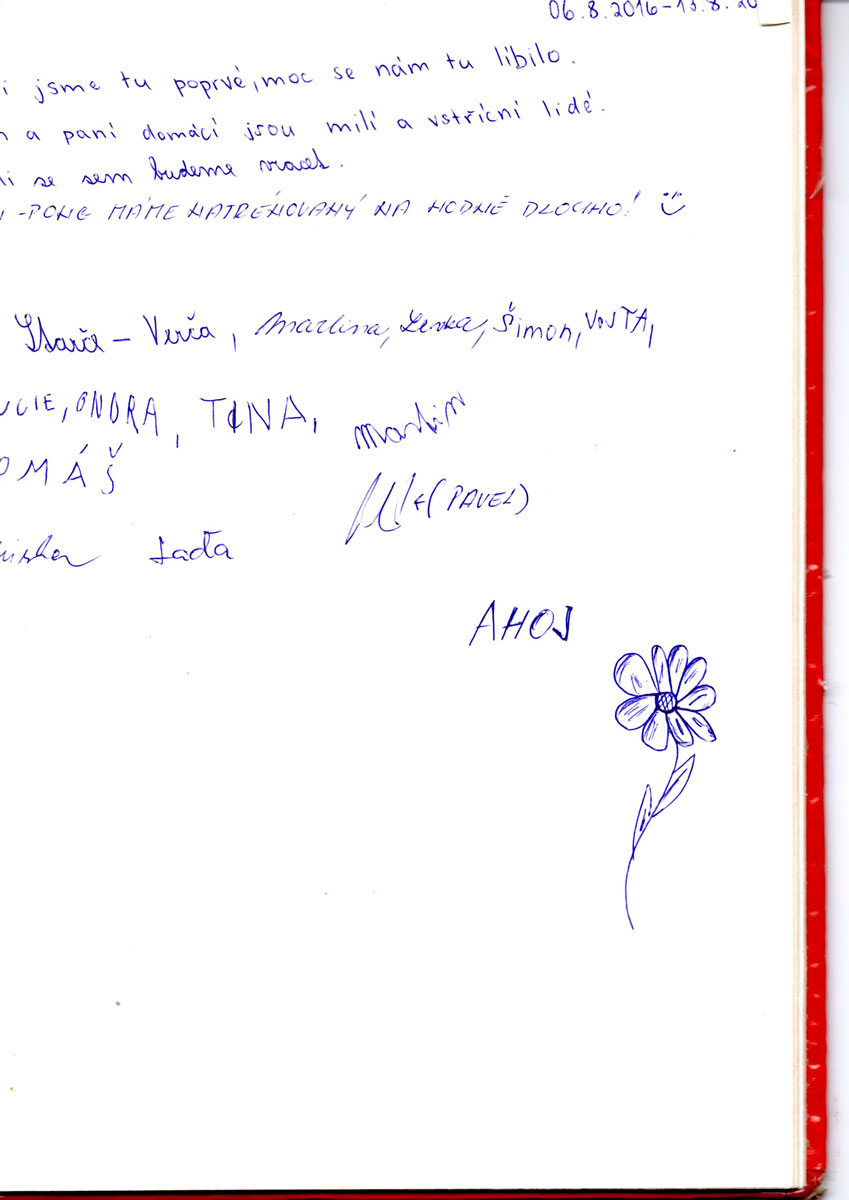 06.8.2016-13.8.20
i jsme tu poprvé, moc se nám tu líbilo.
a paní domácí jsou milí a vstřícní lidé.
se sem budeme vracet.
-PONG MÁME NATRÉNOVANÝ NA HODNĚ DLOUHO!
- Verča, Martina, Lenka, Šimon, VOJTA,
UCIE, ONDRA, TINA, Martin
OMÁŠ
(PAVEL)
Laďa
AHOJ